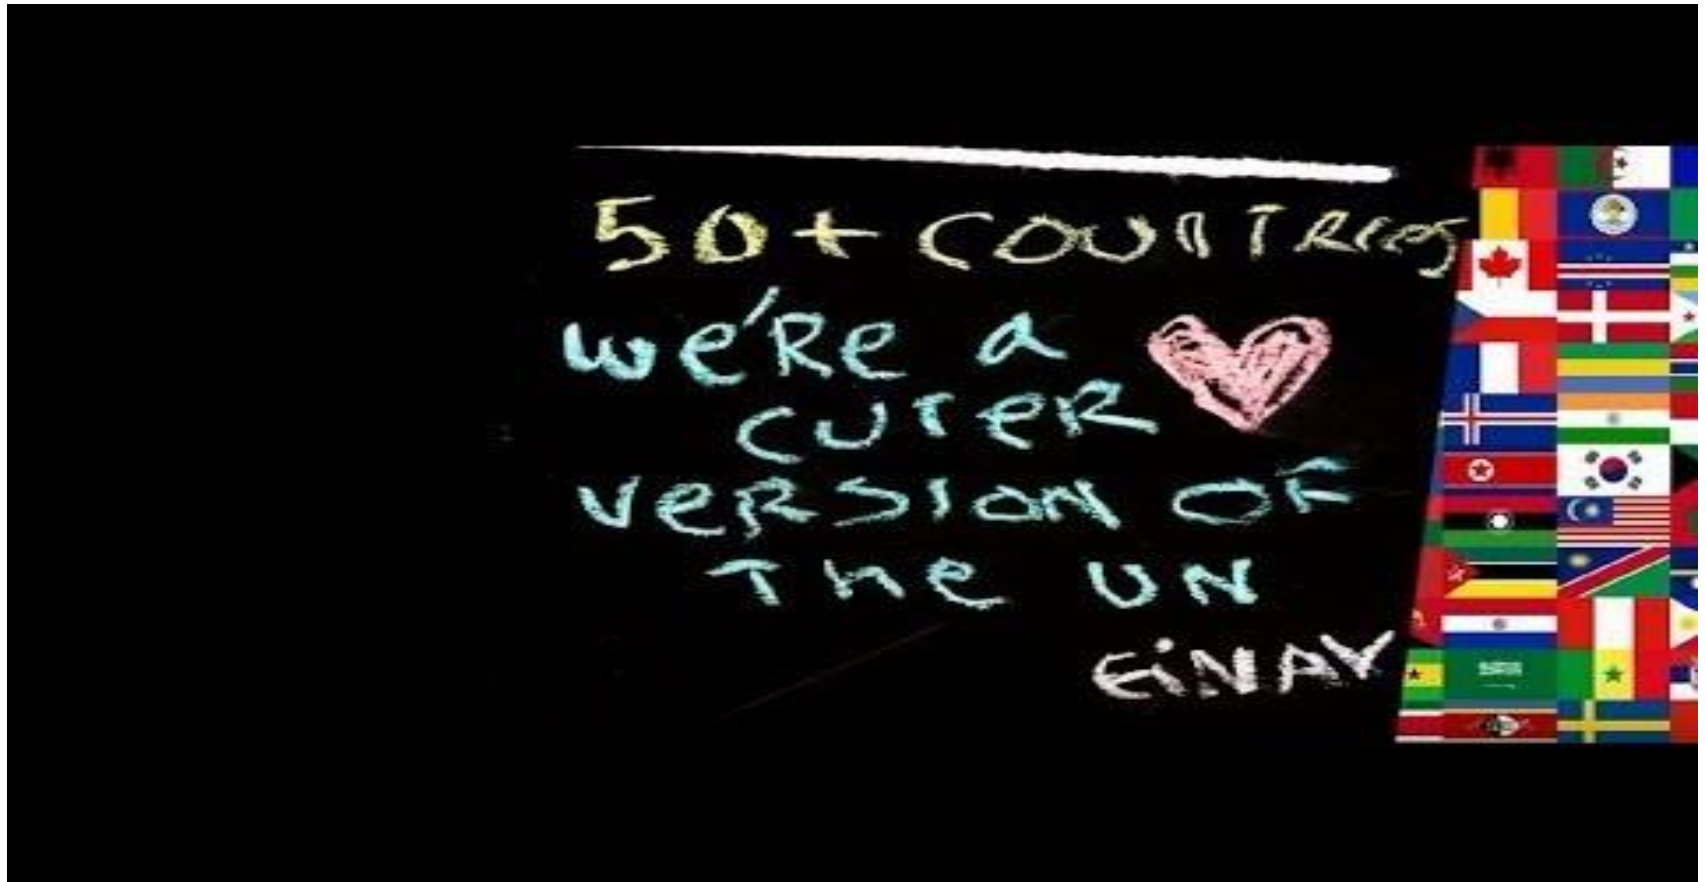 50+ COUNTRIES
We'Re a
CUTER
VERSION OF
THE UN
EiNAV